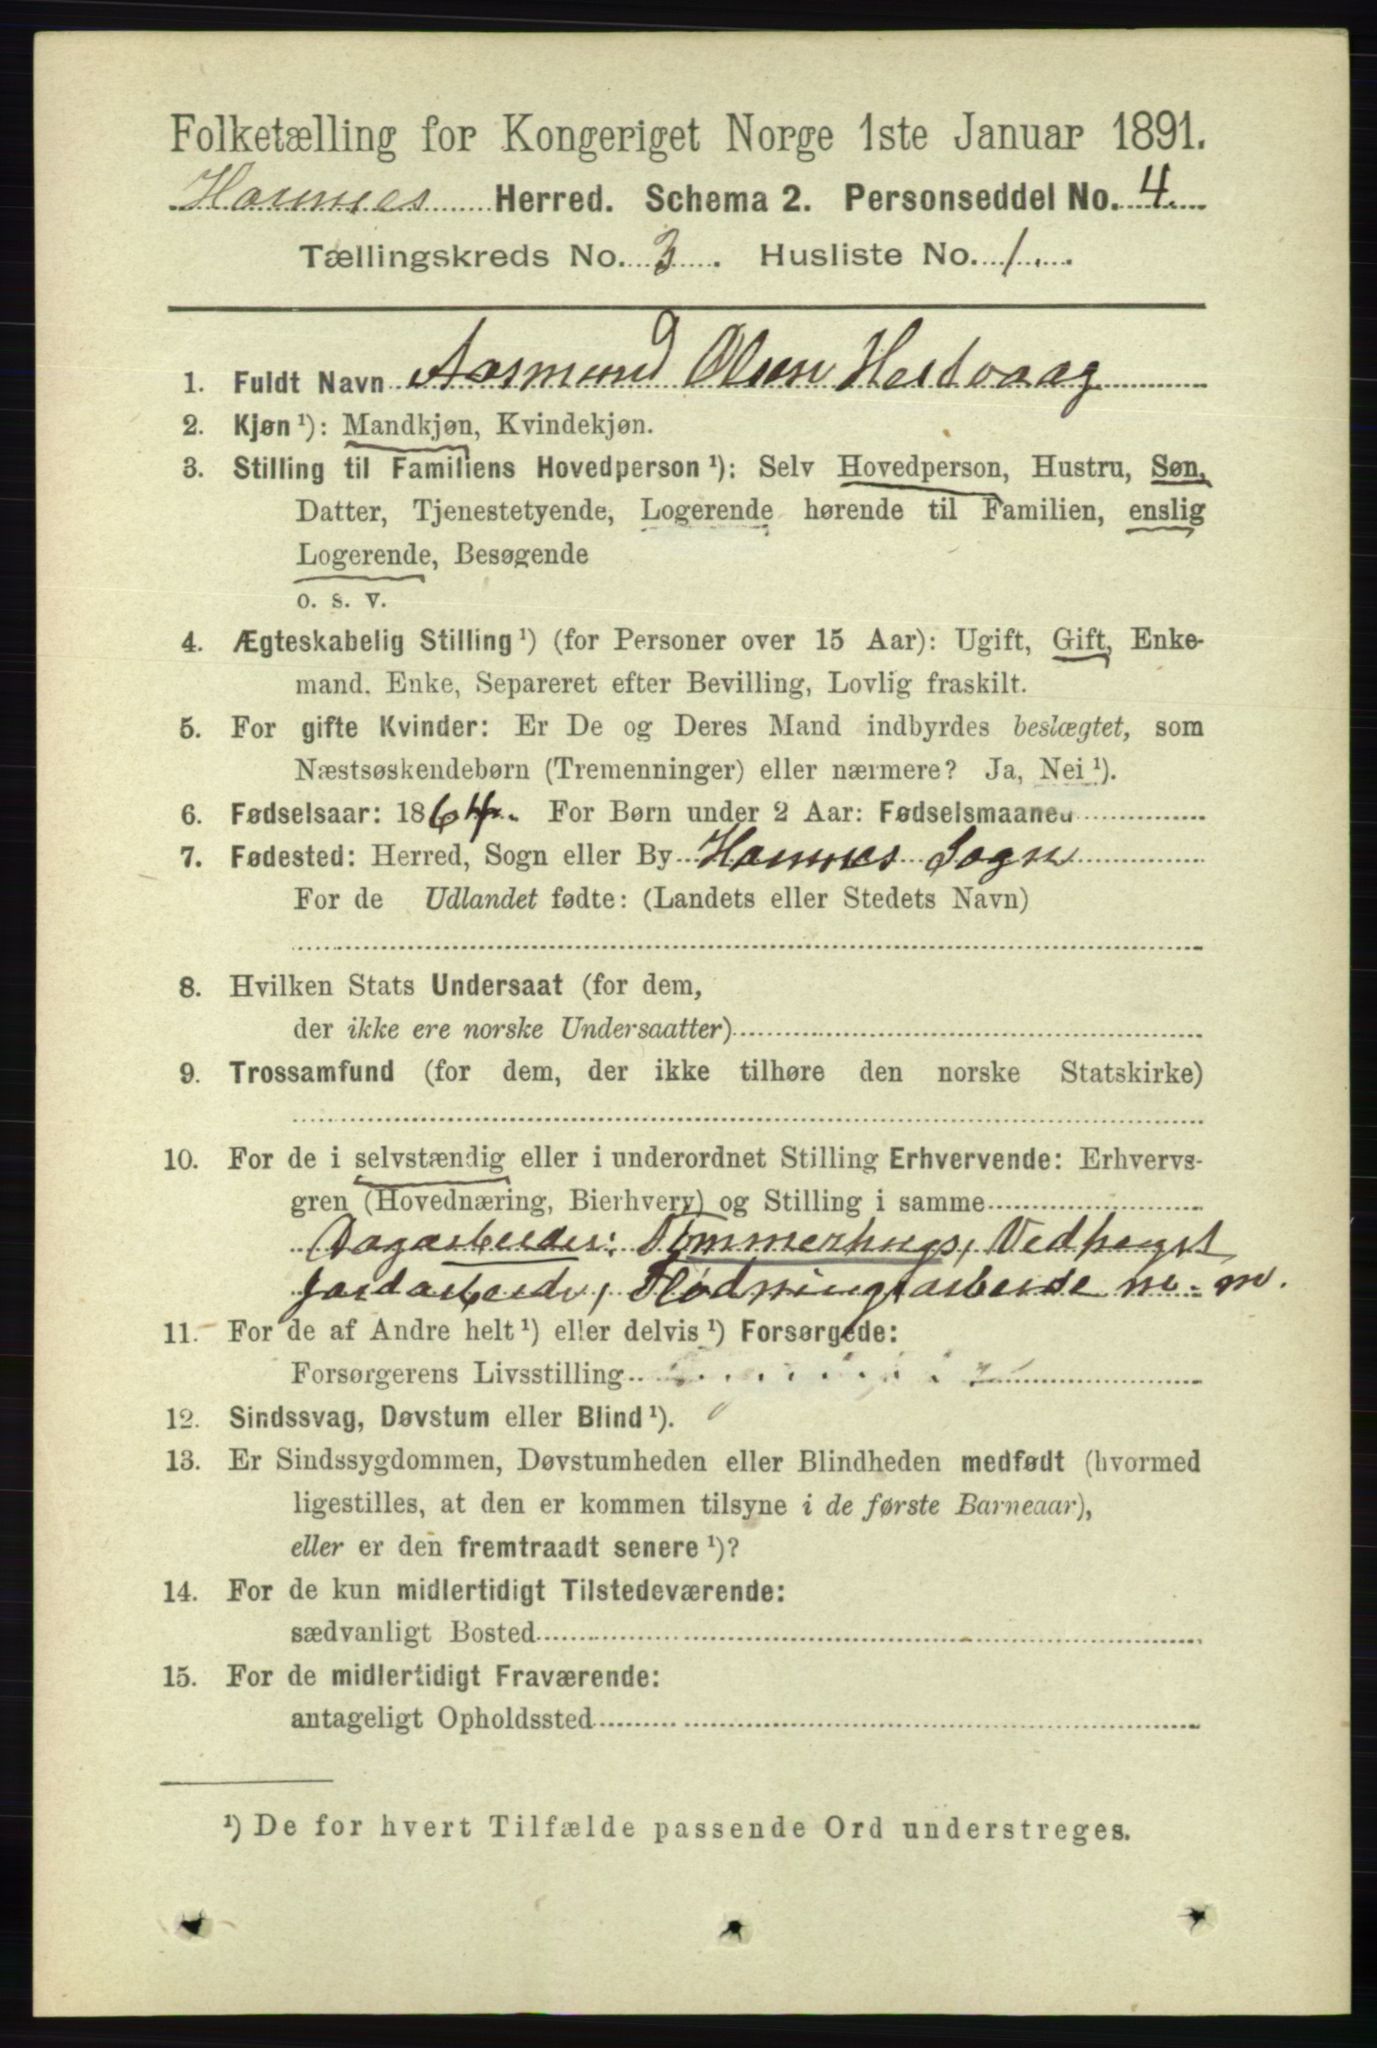 Folketælling for Kongeriget Norge 1ste Januar 1891.
Hornnes Herred. Schema 2. Personseddel No. 4.
Tællingskreds No. 3. Husliste No. 1.
1. Fuldt Navn Aasmund Olsen Hestvaag
2. Kjøn ¹): Mandkjøn, Kvindekjøn.
3. Stilling til Familiens Hovedperson ¹): Selv Hovedperson, Hustru, Søn,
Datter, Tjenestetyende, Logerende hørende til Familien, enslig
Logerende, Besøgende
o. s. v.
4. Ægteskabelig Stilling ¹) (for Personer over 15 Aar): Ugift, Gift, Enke-
mand, Enke, Separeret efter Bevilling, Lovlig fraskilt.
5. For gifte Kvinder: Er De og Deres Mand indbyrdes beslægtet, som
Næstsøskendebørn (Tremenninger) eller nærmere? Ja, Nei ¹).
6. Fødselsaar: 1864. For Børn under 2 Aar: Fødselsmaaned
7. Fødested: Herred, Sogn eller By Hornnes Sogn
For de Udlandet fødte: (Landets eller Stedets Navn)
8. Hvilken Stats Undersaat (for dem,
der ikke ere norske Undersaatter)
9. Trossamfund (for dem, der ikke tilhøre den norske Statskirke)
10. For de i selvstændig eller i underordnet Stilling Erhvervende: Erhvervs-
gren (Hovednæring, Bierhverv) og Stilling i samme
Dagarbeider: Tømmerhugs, Vedhugst
Jordarbeide, Flødningsarbeide m. m.
11. For de af Andre helt ¹) eller delvis ¹) Forsørgede:
Forsørgerens Livsstilling
12. Sindssvag, Døvstum eller Blind ¹).
13. Er Sindssygdommen, Døvstumheden eller Blindheden medfødt (hvormed
ligestilles, at den er kommen tilsyne i de første Barneaar),
eller er den fremtraadt senere ¹)?
14. For de kun midlertidigt Tilstedeværende:
sædvanligt Bosted
15. For de midlertidigt Fraværende:
antageligt Opholdssted
¹) De for hvert Tilfælde passende Ord understreges.